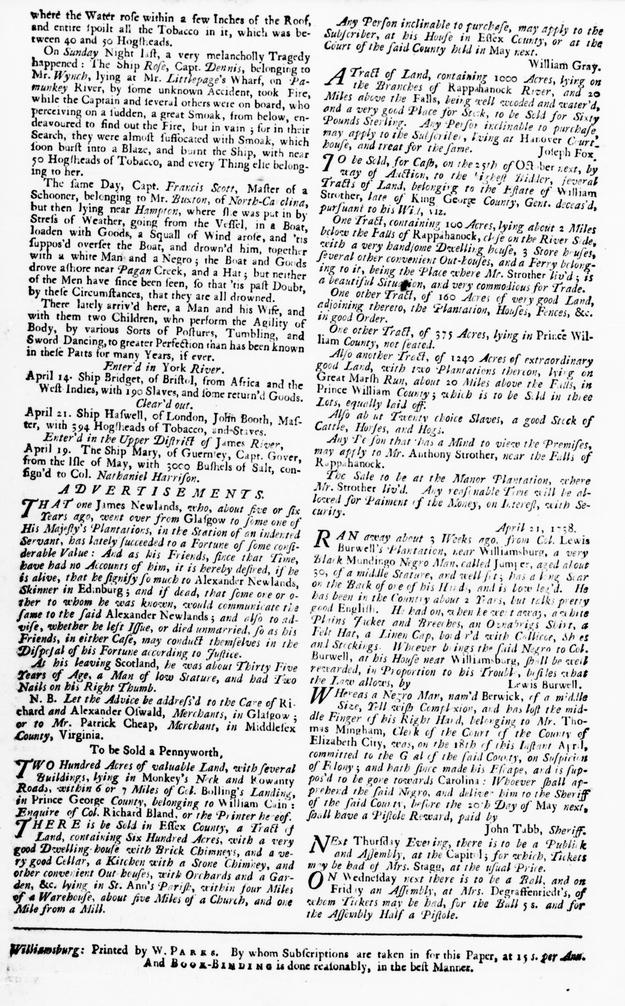 where the Water rose within a few Inches of the Roof,
and entire spoilt all the Tobacco in it, which was be-
tween 40 and 50 Hogsheads.
On Sunday Night last, a very melancholly Tragedy
happened: The Ship Rose, Capt. Dennis, belonging to
Mr. Wynch, lying at Mr. Littlepage's Wharf, on Pa-
munkey River, by some unknown Accident, took Fire,
while the Captain and several others were on board, who
perceiving on a sudden, a great Smoak, from below, en-
deavoured to find out the Fire, but in vain; for in their
Search, they were almost suffocated with Smoak, which
soon burst into a Blaze, and burnt the Ship, with near
50 Hogsheads of Tobacco, and every Thing else belong-
ing to her.
The same Day, Capt. Francis Scott, Master of a
Schooner, belonging to Mr. Buxton, of North-Ca olina,
but then lying near Hampton, where she was put in by
Stress of Weather, going from the Vessel, in a Boat,
loaden with Goods, a Squall of Wind arose, and 'tis
suppos'd overset the Boat, and drown'd him, together
with a white Man and a Negro; the Boat and Goods
drove ashore near Pagan Creek, and a Hat; but neither
of the Men have since been seen, so that 'tis past Doubt,
by these Circumstances, that they are all drowned.
There lately arriv'd here, a Man and his Wife, and
with them two Children, who perform the Agility of
Body, by various Sorts of Postures, Tumbling, and
Sword Dancing, to greater Perfection than has been known
in these Parts for many Years, if ever.
Enter'd in York River.
April 14. Ship Bridget, of Bristol, from Africa and the
West Indies, with 190 Slaves, and some return'd Goods.
Clear'd out.
April 21. Ship Haswell, of London, John Booth, Mas-
ter, with 394 Hogsheads of Tobacco, and Staves.
Enter'd in the Upper District of James River,
April 19. The Ship Mary, of Guernsey, Capt. Gover,
from the Isle of May, with 3000 Bushels of Salt, con-
sign'd to Col. Nathaniel Harrison.
ADVERTISEMENTS.
THAT one James Newlands, who, about five or six
Years ago, went over from Glasgow to some one of
His Majesty's Plantations, in the Station of an indented
Servant, has lately succeeded to a Fortune of some consi-
derable Value: And as his Friends, since that Time,
have had no Accounts of him, it is hereby desired, if he
is alive, that he signify so much to Alexander Newlands,
Skinner in Edinburg; and if dead, that some one or o-
ther to whom he was known, would communicate the
same to the said Alexander Newlands; and also to ad-
vise, whether he left Issue, or died unmarried, so as his
Friends, in either Case, may conduct themselves in the
Disposal of his Fortune according to Justice.
At his leaving Scotland, he was about Thirty Five
Years of Age, a Man of low Stature, and had Two
Nails on his Right Thumb.
N. B. Let the Advice be address'd to the Care of Ri-
chard and Alexander Oswald, Merchants, in Glasgow;
or to Mr. Patrick Cheap, Merchant, in Middlesex
County, Virginia.
To be Sold a Pennyworth,
TWO Hundred Acres of valuable Land, with several
Buildings, lying in Monkey's Neck and Rowanty
Roads, within 6 or 7 Miles of Col. Bolling's Landing,
in Prince George County, belonging to William Cain:
Enquire of Col. Richard Bland, or the Printer he eof.
THERE is be Sold in Essex County, a Tract of
Land, containing Six Hundred Acres, with a very
good Dwelling-house with Brick Chimneys, and a ve-
ry good Cellar, a Kitchen with a Stone Chimney, and
other convenient Out houses, with Orchards and a Gar-
den, &c. lying in St. Ann's Parish, within four Miles
of a Warehouse, about five Miles of a Church, and one
Mile from a Mill.
Any Person inclinable to purchase, may apply to the
Subscriber, at his House in Essex County, or at the
Court of the said County held in May next.
William Gray.
A Tract of Land, containing 1000 Acres, lying on
the Branches of Rappahanock River, and 20
Miles above the Falls, being well wooded and water'd,
and a very good Place for Stock, to be Sold for Sixty
Pounds Sterling. Any Person inclinable to purchase
may apply to the Subscriber, living at Hanover Court-
house, and treat for the same.
Joseph Fox.
TO be Sold, for Cash, on the 25th of October next, by
way of Auction, to the highest Bidder, several
Tracts of Land, belonging to the Estate of William
Strother, late of King George County, Gent. deceas'd,
pursuant to his Will, viz.
One Tract, containing 100 Acres, lying about 2 Miles
below the Falls of Rappahanock, close on the River Side,
with a very handsome Dwelling-house, 3 Store houses,
several other convenient Out-houses, and a Ferry belong-
ing to it, being the Place where Mr. Strother liv'd; is
a beautiful Situation, and very commodious for Trade.
One other Tract, of 160 Acres of very good Land,
adjoining thereto, the Plantation, Houses, Fences, &c.
in good Order.
One other Tract, of 375 Acres, lying in Prince Wil-
liam County, not seated.
Also another Tract, of 1240 Acres of extraordinary
good Land, with two Plantations thereon, lying on
Great Marsh Run, about 20 Miles above the Falls, in
Prince William County; which is to be Sold in three
Lots, equally laid off.
Also about Twenty choice Slaves, a good Stock of
Cattle, Horses, and Hogs.
Any Person that has a Mind to view the Premises,
may apply to Mr. Anthony Strother, near the Falls of
Rappahanock.
The Sale to be at the Manor Plantation, where
Mr. Strother liv'd. Any reasonable Time will be al-
lowed for Paiment of the Money, on Interest, with Se-
curity.
April 21, 1738.
RAN away about 3 Weeks ago, from Col. Lewis
Burwell's Plantation, near Williamsburg, a very
Black Mundingo Negro Man, called Jumper, aged about
30, of a middle Stature, and well set; has a long Scar
on the Back of one of his Hands, and is bow leg'd. He
has been in the Country about 2 Years, but talks pretty
good English. He had on, when he went away, a white
Plains Jacket and Breeches, an Oznabrigs Shirt, a
Felt Hat, a Linen Cap, bord'r'd with Callicoe, Shoes
and Stockings. Whoever brings the said Negro to Col.
Burwell, at his House near Williamsburg, shall be well
rewarded, in Proportion to his Trouble, besides what
the Law allows, by
Lewis Burwell.
WHereas a Negro Man, nam'd Berwick, of a middle
Size, Yellowish Complexion, and has lost the mid-
dle Finger of his Right Hand, belonging to Mr. Tho-
mas Mingham, Clerk of the Court of the County of
Elizabeth City, was, on the 18th of this Instant April,
committed to the Goal of the said County, on Suspicion
of Felony; and hath since made his Escape, and is sup-
pos'd to be gone towards Carolina: Whoever shall ap-
prehend the said Negro, and deliver him to the Sheriff
of the said County, before the 20th Day of May next,
shall have a Pistole Reward, paid by
John Tabb, Sheriff.
NExt Thursday Evening, there is to be a Publick
and Assembly, at the Capitol; for which, Tickets
may be had of Mrs. Stagg, at the usual Price.
ON Wednesday next there is to be a Ball, and on
Friday an Assembly, at Mrs. Degraffenriedt's, of
whom Tickets may be had, for the Ball 5 s. and for
the Assembly Half a Pistole.
Williamsburg: Printed by W. PARKS. By whom Subscriptions are taken in for this Paper, at 15 s. per Ann.
And BOOK-BINDING is done reasonably, in the best Manner.